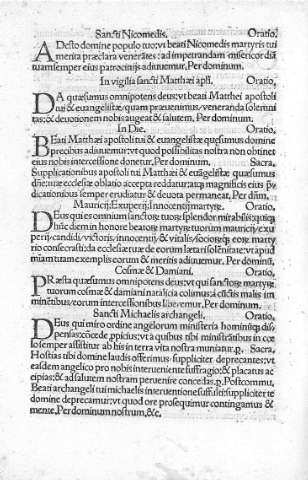 Sancti Nicomedis. Oratio,
ADesto domine populo tuo: vt beati Nicomedis martyris tui
merita præclara venerātes: ad impetrandam misericor diā
tuam semper eius patrocinijs adiuuemur. Per dominum.
In vigilia sancti Matthæi apłi. Oratio,
DA quæsumus omnipotens deus: vt beati Matthei apostoli
tui & euangelistæ: quam præuenimus: veneranda solenni
tas: & deuotionem nobis augeat & salutem. Per dominum.
In Die. Oratio,
BEati Matthæi apostoli tui & euāgelistæ quæsumus domine
precibus adiuuemur: vt quod possibilitas nostra non obtinet
eius nobis intercessione donetur. Per dominum. Sacra,
Supplicationibus apostoli tui Matthæi & euāgelistæ quæsumus
dñe: uræ ecclesiæ oblatio accepta reddatur: cuius magnificis eius p̄
dicationibus semper erudiatur & deuota permaneat. Per dñm.
Mauricij. Exuperij. Innocentij martyrę. Oratio,
DEus qui es omnium sanctorꝝ tuorꝝ splendor mirabilis: quiq̨
hūc diem in honore beatorꝝ martyrꝝ tuorum mauricij/ exu
perij/ candidi/ victoris/ innocentij/ & vitalis/ sociorꝝq; eorꝝ marty
rio consecrasti: da ecclesiæ tuæ de eorum læta solēnitate: vt apud
miam tuam exemplis eorum & meritis adiuuemur. Per dominū,
Cosmæ & Damiani. Oratio,
PRæsta quæsumus omnipotens deus: vt qui sanctorꝝ martyrꝝ
tuorum cosmæ & damiani natalicia colimus: a cūctis malis im
minētibus/ eorum intercessionibus liberemur. Per dominum.
Sancti Michaelis archangeli. Oratio,
DEus qui miro ordine angelorum ministeria hominūq; dis
pensas: cōcede ppicius: vt a quibus tibi ministrātibus in cœ
lo semper assistitur ab his in terra vita nostra muniatur. p. Sacra,
Hostias tibi domine laudis offerimus suppliciter deprecantes: vt
easdem angelico pro nobis interueniente suffragio: & placatus ac
cipias: & ad salutem nostram peruenire concedas. p. Postcommu,
Beati archangeli tui michaelis interuentione suffulti: suppliciter te
domine deprecamur: vt quod ore prosequimur contingamus &
mente. Per dominum nostrum, &c.